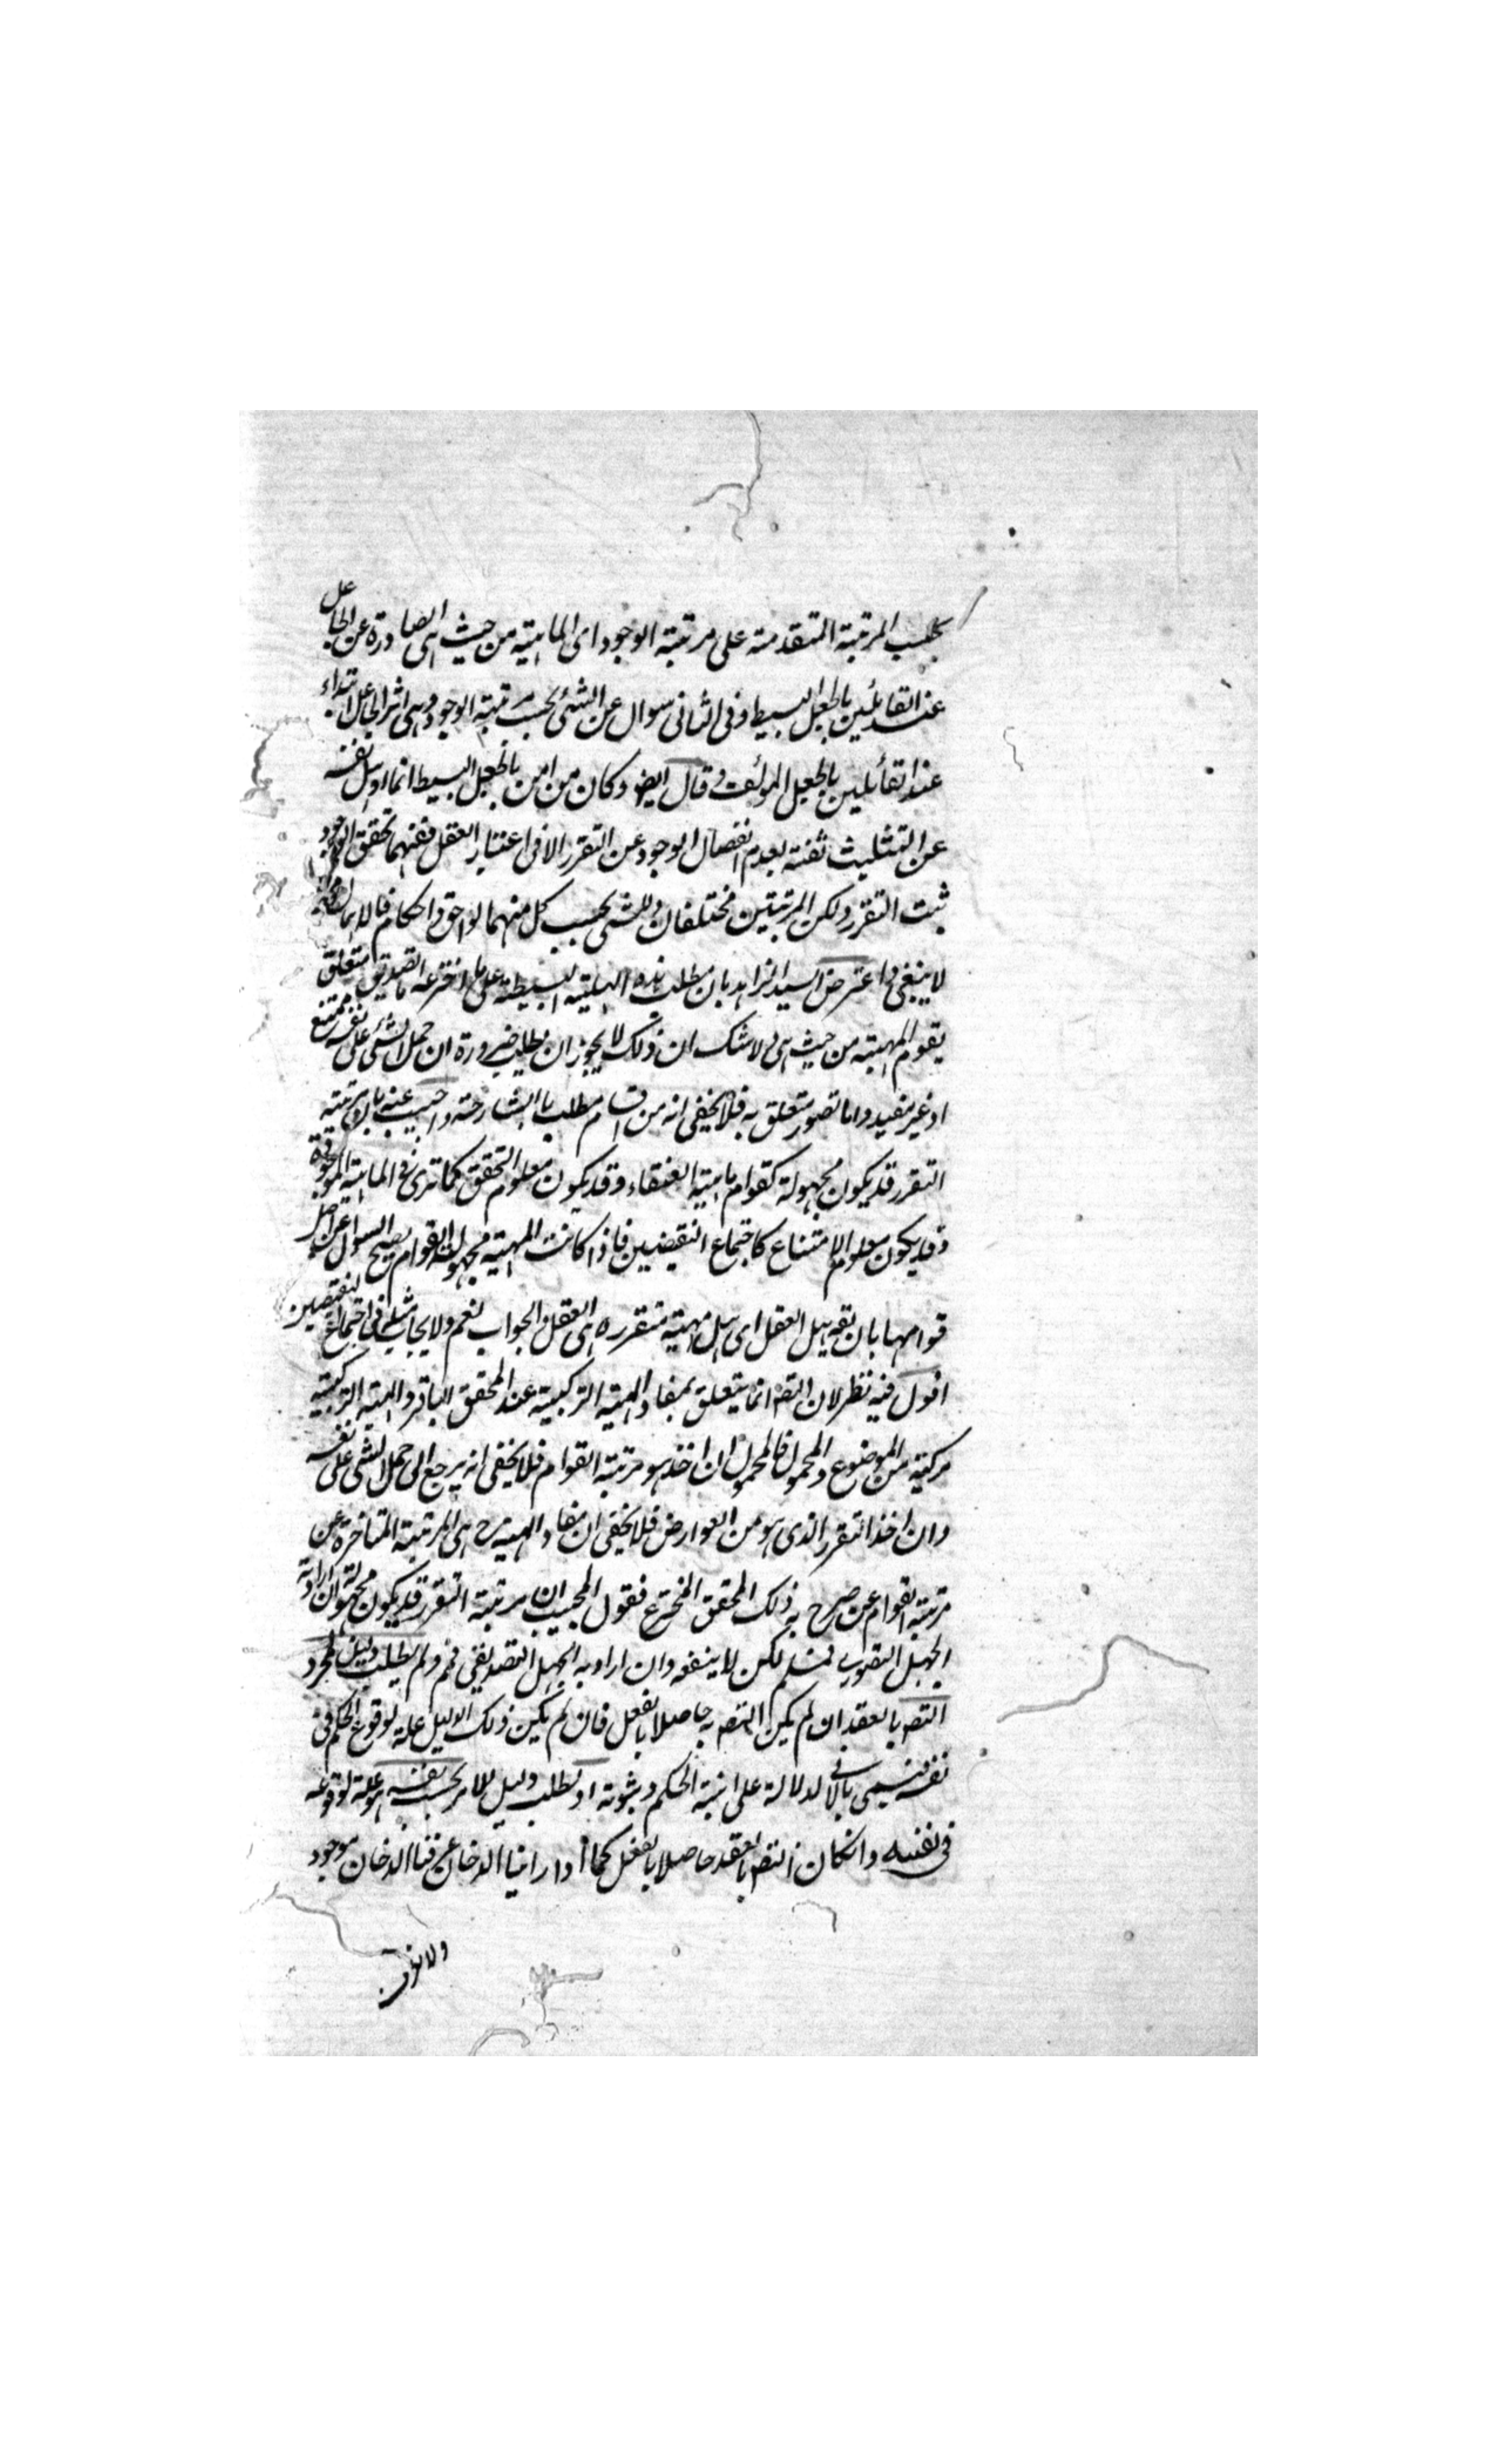 بحسب المرتبة المتقدمة على مرتبة الوجود اى الماهية من حيث هى الصادرة عن الجاعل
عند القائلين بالجعل البسيط وفى الثانى سوال عن الشئ بحسب مرتبة الوجود وهى اثر الجاعل ابتداء
عند القائلين بالجعل المؤلف وقال ايضا وكان من امن بالجعل البسيط انما اوهل نفسه
عن التثليث ثقته بعدم انفصال الوجود عن التقرر الا فى اعتبار العقل ففيهما تحقق الوجود
ثبت التقرر ولكن المرتبتين مختلفان وللشئ بحسب كل منهما لواحق واحكام فالاهمال
لا ينبغى واعترض السيد الزاهد بان مطلب هذه الهلية البسيطة على ما اخترعه اما تصديق متعلق
بقوام المهية من حيث هى ولا شك ان ذلك لا يجوز ان يطلب ضرورة ان حمل الشئ على نفسه ممتنع
او غير مفيد واما تصور متعلق به فلا يخفى انه من اقسام مطلب ما الشارحة واجيب عنه بان مرتبة
التقرر قد يكون مجهولة كقوام ماهية العنقاء وقد يكون معلوم التحقق كما ترى فى الماهية الموجودة
وقد يكون معلوم الامتناع كاجتماع النقيضين فاذا كانت المهية مجهولة القوام يصح السوال عن اصل
قوامها بان يقال هل العقل اى هل مهية متقررة هى العقل والجواب نعم ولا يجاب بمثله فى اجتماع النقيضين
اقول فيه نظر لان التصـ انما يتعلق بمفاد الهيئة التركيبية عند المحقق الباقر والهيئة التركيبية
مركبة من الموضوع والمحمول فالمحمول ان اخذ هو مرتبة القوام فلا يخفى انه يرجع الى حمل الشئ على نفسه
وان اخذ التقرر الذى هو من العوارض فلا يخفى ان مفاد الهيئة ح هى المرتبة المتاخرة عن
مرتبة القوام عن صرح به ذلك المحقق المخترع فقول المجيب ان مرتبة التقرر قد يكون مجهولة ان اراد به
الجهل التصورى فمسلم لكن لا ينفعه وان اراد به الجهل التصديقى فمم ولم يطلب دليل لمجرد
التصـ بالعقد ان لم يكن التصـ به حاصلا بالفعل فان لم يكن ذلك الدليل علة لوقوع الحكم فى
نفسه فيسمى بالانى لدلالة على انية الحكم وثبوته او يطلب دليل للامر بحسب نفسه هو علة لوقوعه
فى نفسه وانكان التصـ بالعقد حاصلا بالفعل كما اذا راينا الدخان عرفنا الدخان موجود
ولا نعرف